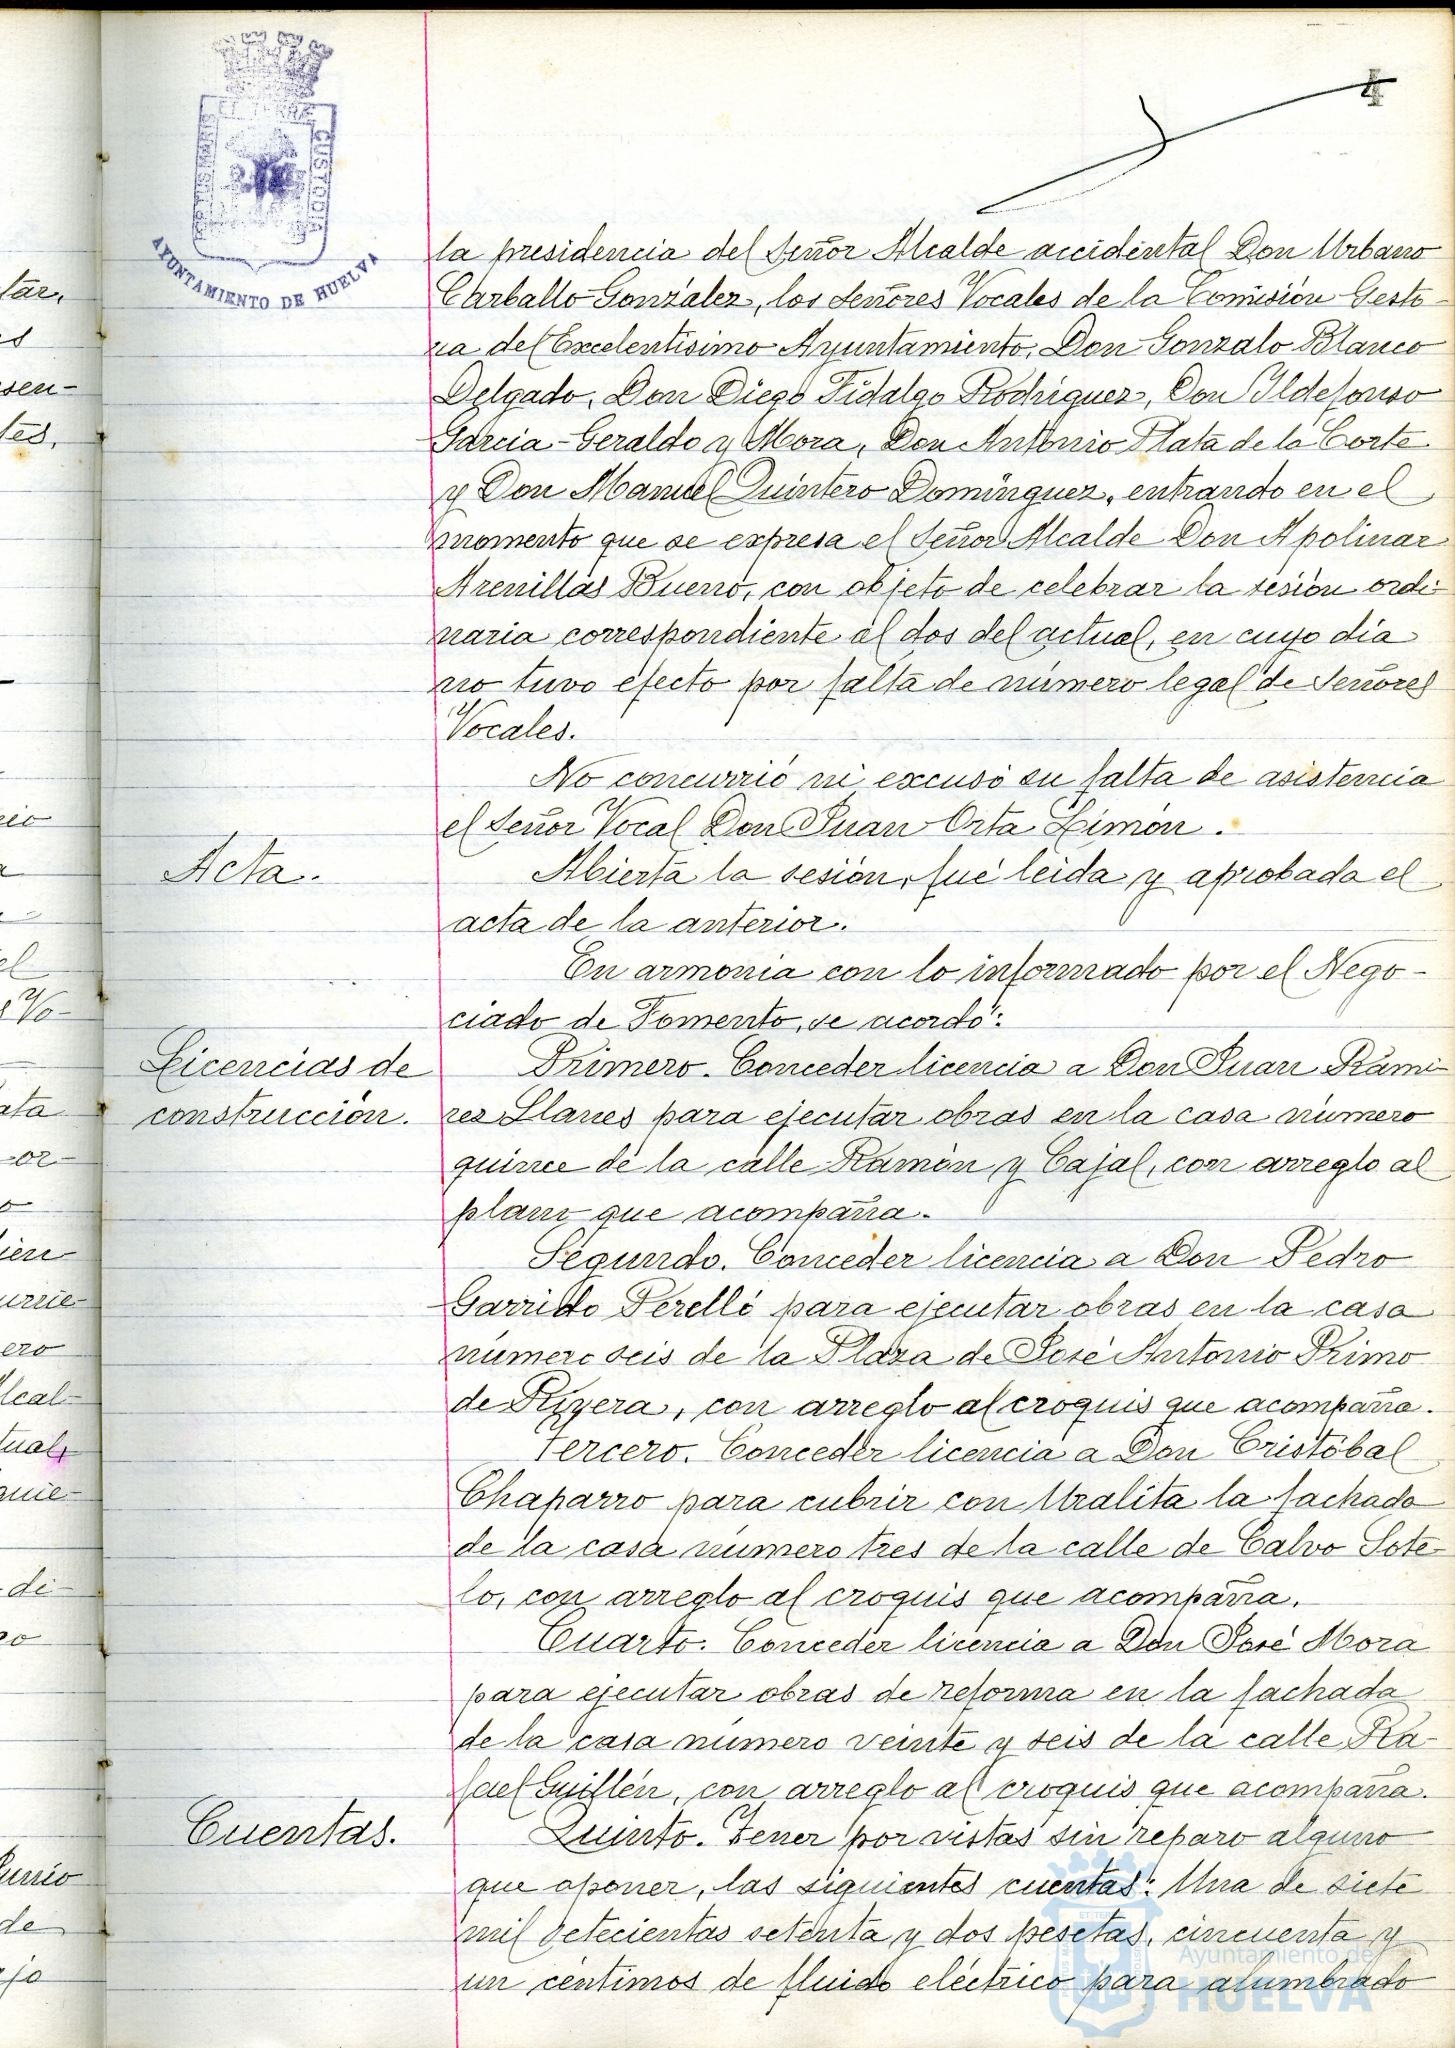 4
PORTUS MARIS ET TERRAE CUSTODIA
AYUNTAMIENTO DE HUELVA
la presidencia del Señor Alcalde accidental Don Urbano
Carballo González, los Señores Vocales de la Comisión Gesto-
ra del Excelentísimo Ayuntamiento, Don Gonzalo Blanco
Delgado, Don Diego Fidalgo Rodríguez, Don Ildefonso
García-Geraldo y Mora, Don Antonio Plata de la Corte
y Don Manuel Quintero Domínguez, entrando en el
momento que se expresa el Señor Alcalde Don Apolinar
Arenillas Bueno, con objeto de celebrar la sesión ordi-
naria correspondiente al dos del actual, en cuyo día
no tuvo efecto por falta de número legal de Señores
Vocales.
No concurrió ni excusó su falta de asistencia
el Señor Vocal Don Juan Orta Limón.
Acta.
Abierta la sesión, fué leida y aprobada el
acta de la anterior.
En armonía con lo informado por el Nego-
ciado de Fomento, se acordó:
Licencias de
construcción.
Primero. Conceder licencia a Don Juan Rami-
rez Llanes para ejecutar obras en la casa número
quince de la calle Ramón y Cajal, con arreglo al
plano que acompaña.
Segundo. Conceder licencia a Don Pedro
Garrido Perelló para ejecutar obras en la casa
número seis de la Plaza de José Antonio Primo
de Rivera, con arreglo al croquis que acompaña.
Tercero. Conceder licencia a Don Cristóbal
Chaparro para cubrir con Uralita la fachada
de la casa número tres de la calle de Calvo Sote-
lo, con arreglo al croquis que acompaña.
Cuarto. Conceder licencia a Don José Mora
para ejecutar obras de reforma en la fachada
de la casa número veinte y seis de la calle Ra-
fael Guillén, con arreglo al croquis que acompaña.
Cuentas.
Quinto. Tener por vistas sin reparo alguno
que oponer, las siguientes cuentas: Una de siete
mil setecientas setenta y dos pesetas, cincuenta y
un céntimos de fluido eléctrico para alumbrado
Ayuntamiento de
HUELVA